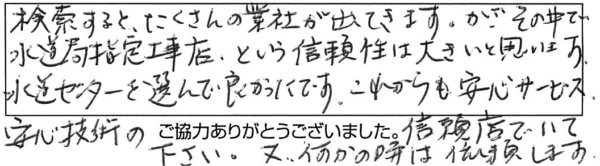 検索すると、たくさんの業社が出てきます。かが その中で
水道局指定工事店、という信頼性は大きいと思います。
水道センターを選んで良かったです。これからも安心サービス、
安心技術の ご協力ありがとうございました。信頼店でいて
下さい。又、何かの時は依頼します。